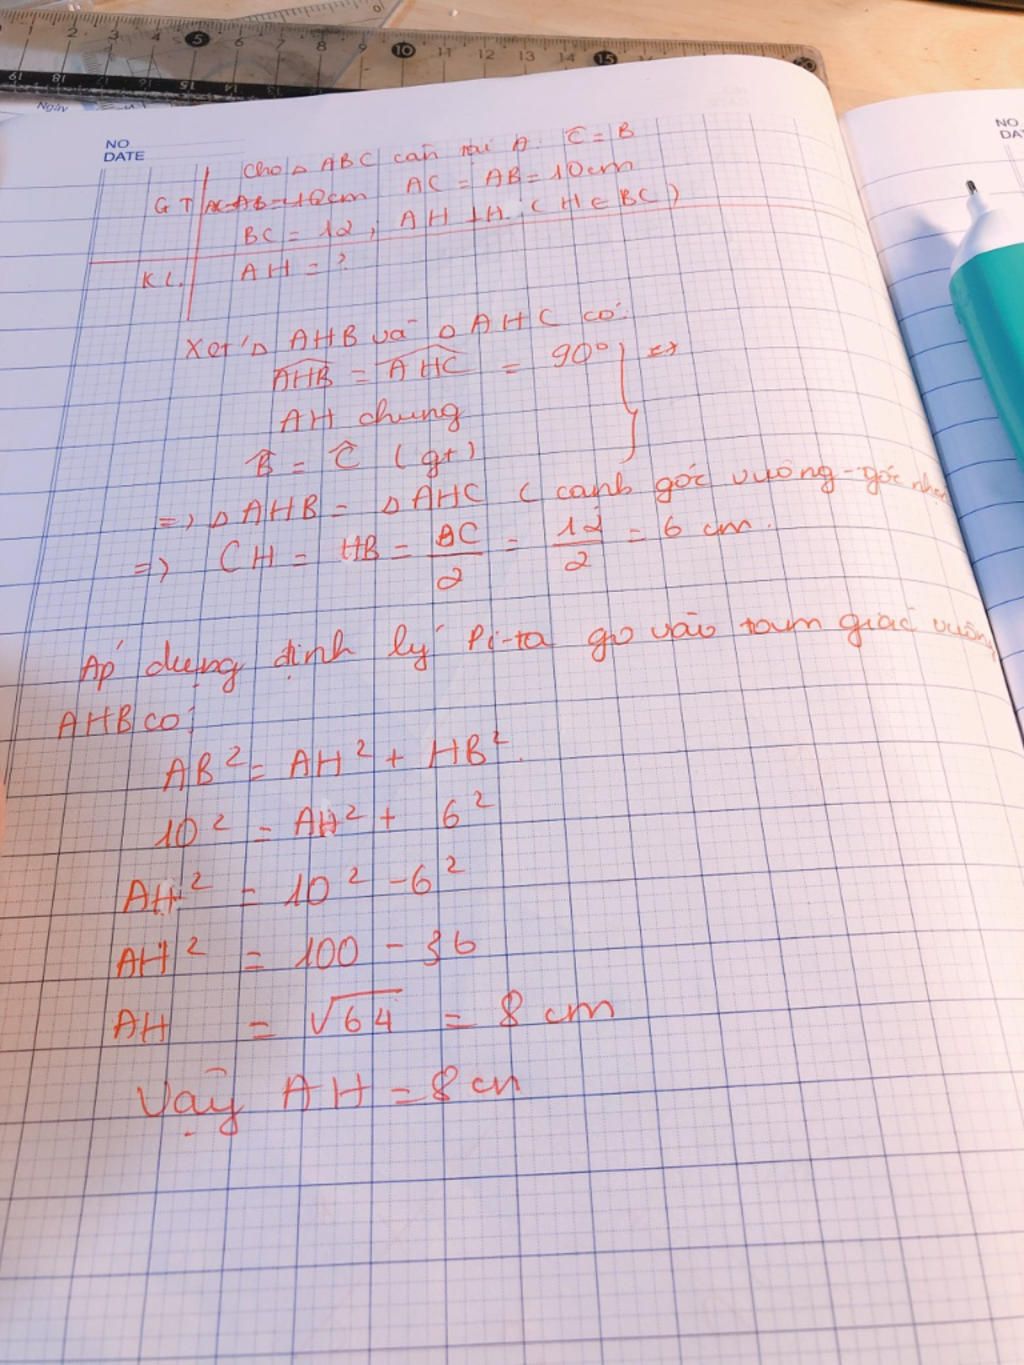 1 2 3 4 5 6 7 8 9 10 11 12 13 14 15
Ngày
NO
DATE
NO
Cho △ ABC cân tại A. C = B
GT AC = AB = 10cm
BC = 12, AH ⊥ H (H ∈ BC)
KL. AH = ?
Xét △ AHB và △ AHC có:
AHB = AHC = 90°
AH chung
B = C (gt)
=> △ AHB = △ AHC (cạnh góc vuông - góc nhọn
=> CH = HB = BC/2 = 12/2 = 6 cm.
Áp dụng định lý Pi-ta go vào tam giác vuông
AHB có:
AB² = AH² + HB².
10² = AH² + 6²
AH² = 10² - 6²
AH² = 100 - 36
AH = √64 = 8 cm
Vậy AH = 8 cm